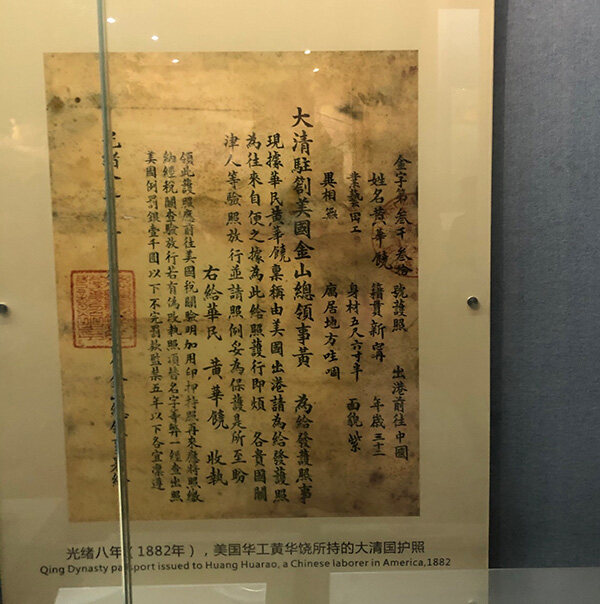 金字第叁千叁拾 號護照 出港前往中國
姓名黄華饒 籍貫新甯 年歲三十二
業藝田工 身材五尺六寸半 面貌紫
異相無 居地方哇個
大清駐劄美國金山總領事黄 為給發護照事
現據華民黄華饒稟稱由美國出港請為給發護照
為往來自便之據為此給照護行即煩 各貴國關
津人等驗照放行並請照例妥為保護是所至盼
右給華民 黄華饒 收執
領此護照應前往美國稅關驗明加用印押特照再來應將照繳
納經稅關查驗放行若有偽改執照頂替名字等弊一經查出照
美國例罰銀壹千圓以下不完罰款監禁五年以下各宜凜遵
光緒
光绪八年（1882年），美国华工黄华饶所持的大清国护照
Qing Dynasty passport issued to Huang Huarao, a Chinese laborer in America,1882